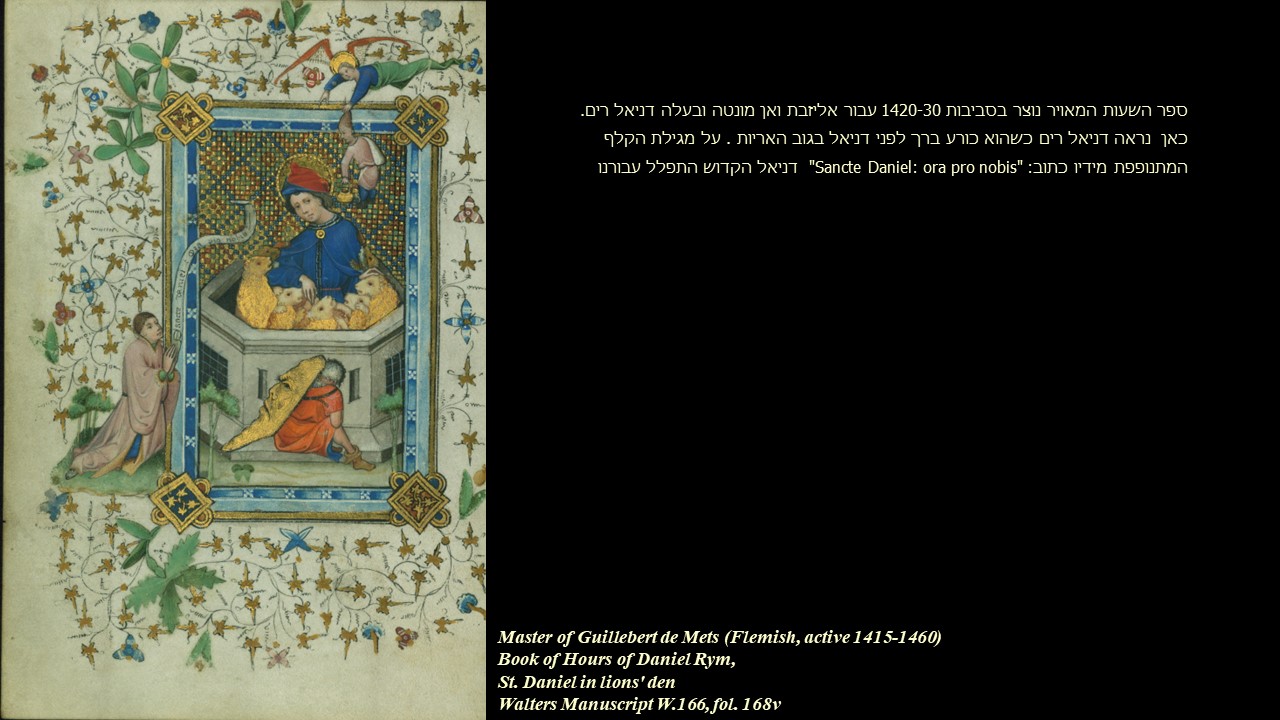 ספר השעות המאויר נוצר בסביבות 1420-30 עבור אליזבת ואן מונטה ובעלה דניאל רים.
כאן נראה דניאל רים כשהוא כורע ברך לפני דניאל בגוב האריות . על מגילת הקלף
המתנופפת מידיו כתוב: "Sancte Daniel: ora pro nobis" דניאל הקדוש התפלל עבורנו
Master of Guillebert de Mets (Flemish, active 1415-1460)
Book of Hours of Daniel Rym,
St. Daniel in lions' den
Walters Manuscript W.166, fol. 168v